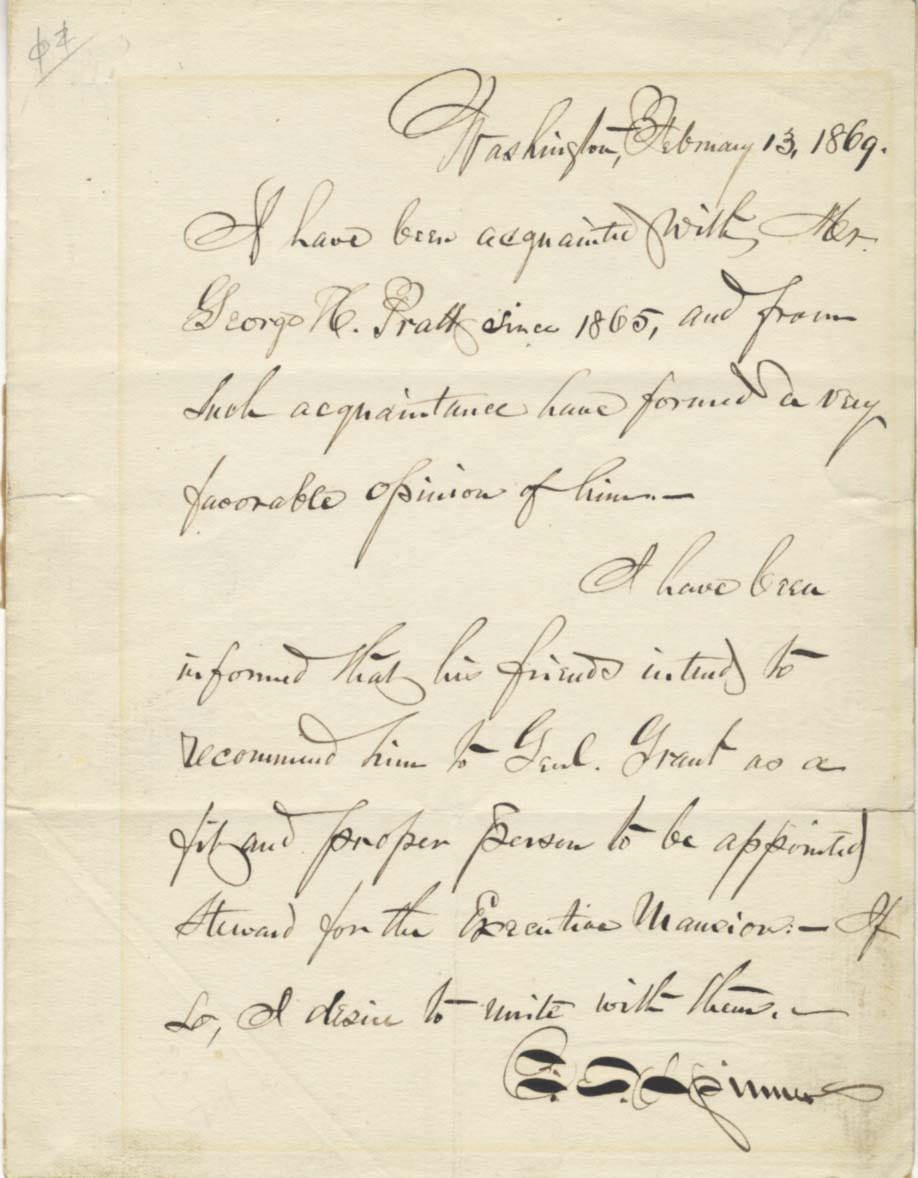 Washington, February 13, 1869.
I have been acquainted with, Mr.
George H. Pratt since 1865, and from
such acquaintance have formed a very
favorable opinion of him.—
I have been
informed that his friends intend to
recommend him to Genl. Grant as a
fit and proper person to be appointed
Steward for the Executive Mansion.— If
so, I desire to unite with them.—
F. E. Spinner